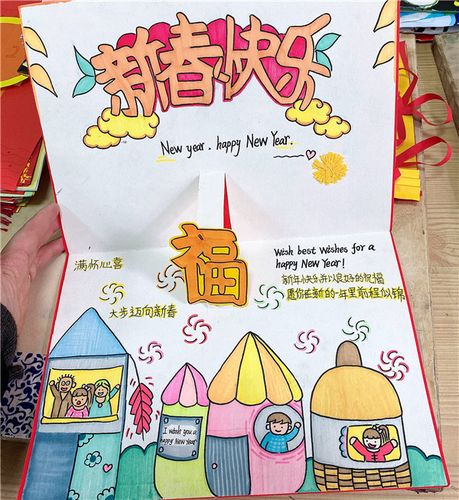 新春快乐
New year. happy New Year.
福
满怀心喜
大步迈向新春
Wish best wishes for a
happy New Year!
新年快乐并以良好的祝福
愿你在新的一年里前程似锦
I wish you a
happy New Year!